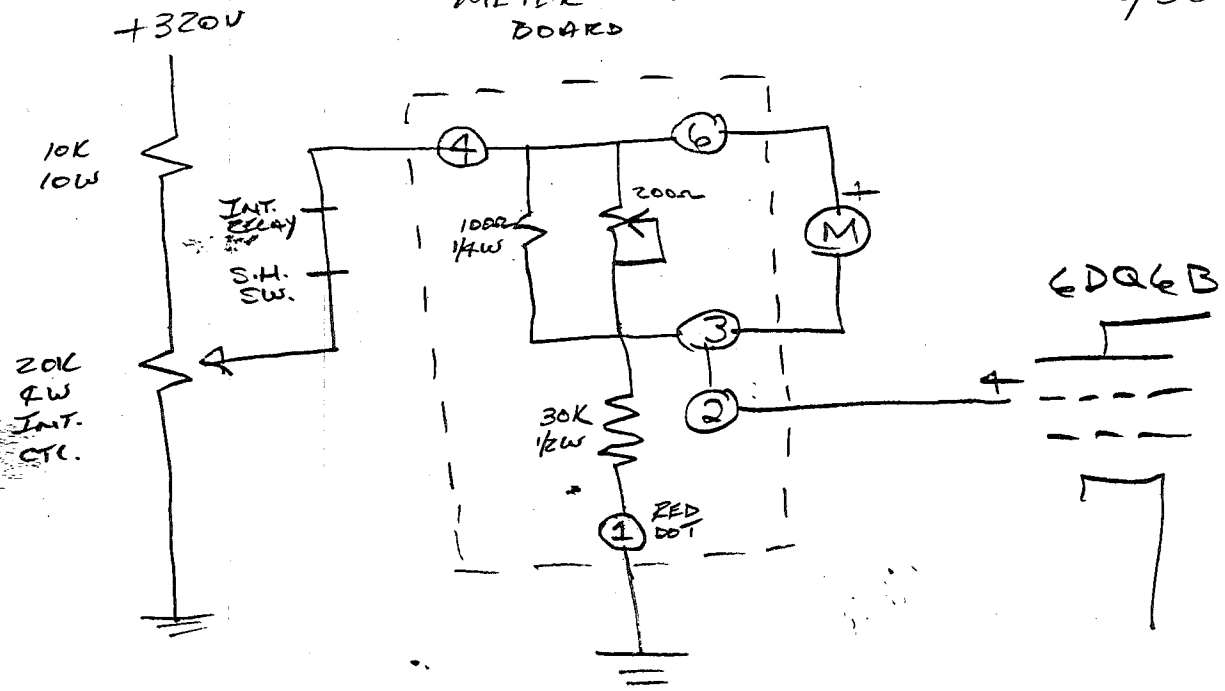 +320V
BOARD
10K
10W
INT.
RELAY
S.H.
SW.
20K
4W
INT.
CTL.
4
6
100Ω
1/4W
200Ω
+
M
3
2
30K
1/2W
1
RED
DOT
4
6DQ6B